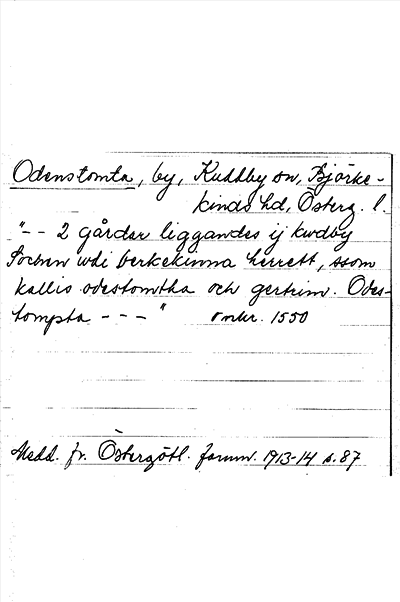 Odenstomta, by, Kuddby sn, Björke-
kinds hd, Österg. l.
"-- 2 gårder liggandes ij kwdby
Sochnn wdi berkekinna herrett, ssom
kallis odestomtha och gertrim. Odes-
tompta --- " omkr. 1550
Medd. fr. Östergötl. fornm. 1913-14 s. 87